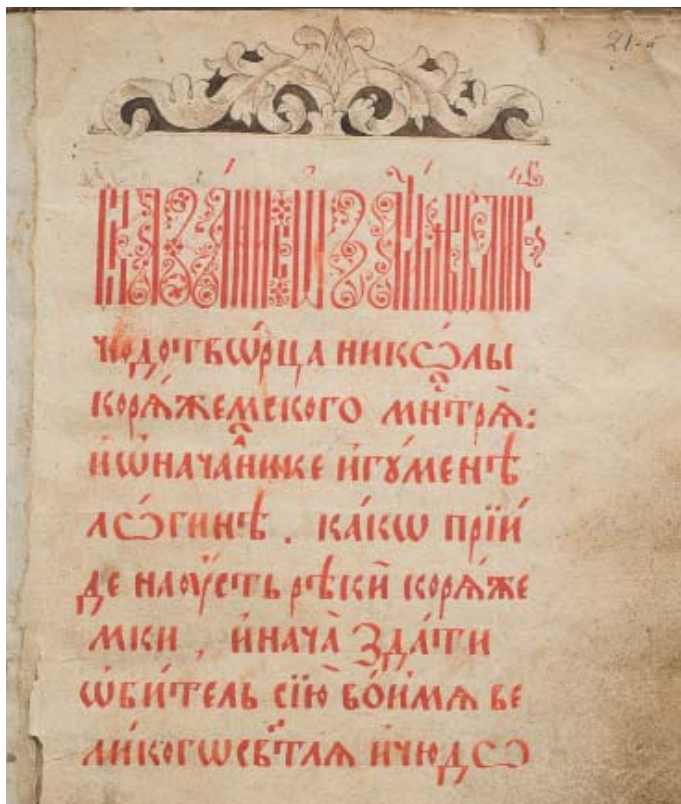 чюдотвѡ́рца никѡ́лы
корѧ́жемского мнⷭ҇трѧ̀:
и҆ѡнача́лнике и҆гꙋ́менѣ
лѡ́гинѣ . ка́кѡ прїи́
де наоу́сть рѣки́ корѧ́же
мки , и҆нача̀ зда́ти
ѡ҆би́тель сїю̀ во́имѧ ве
ли́когѡсвⷮ҇тлѧ и҆чюдѡ